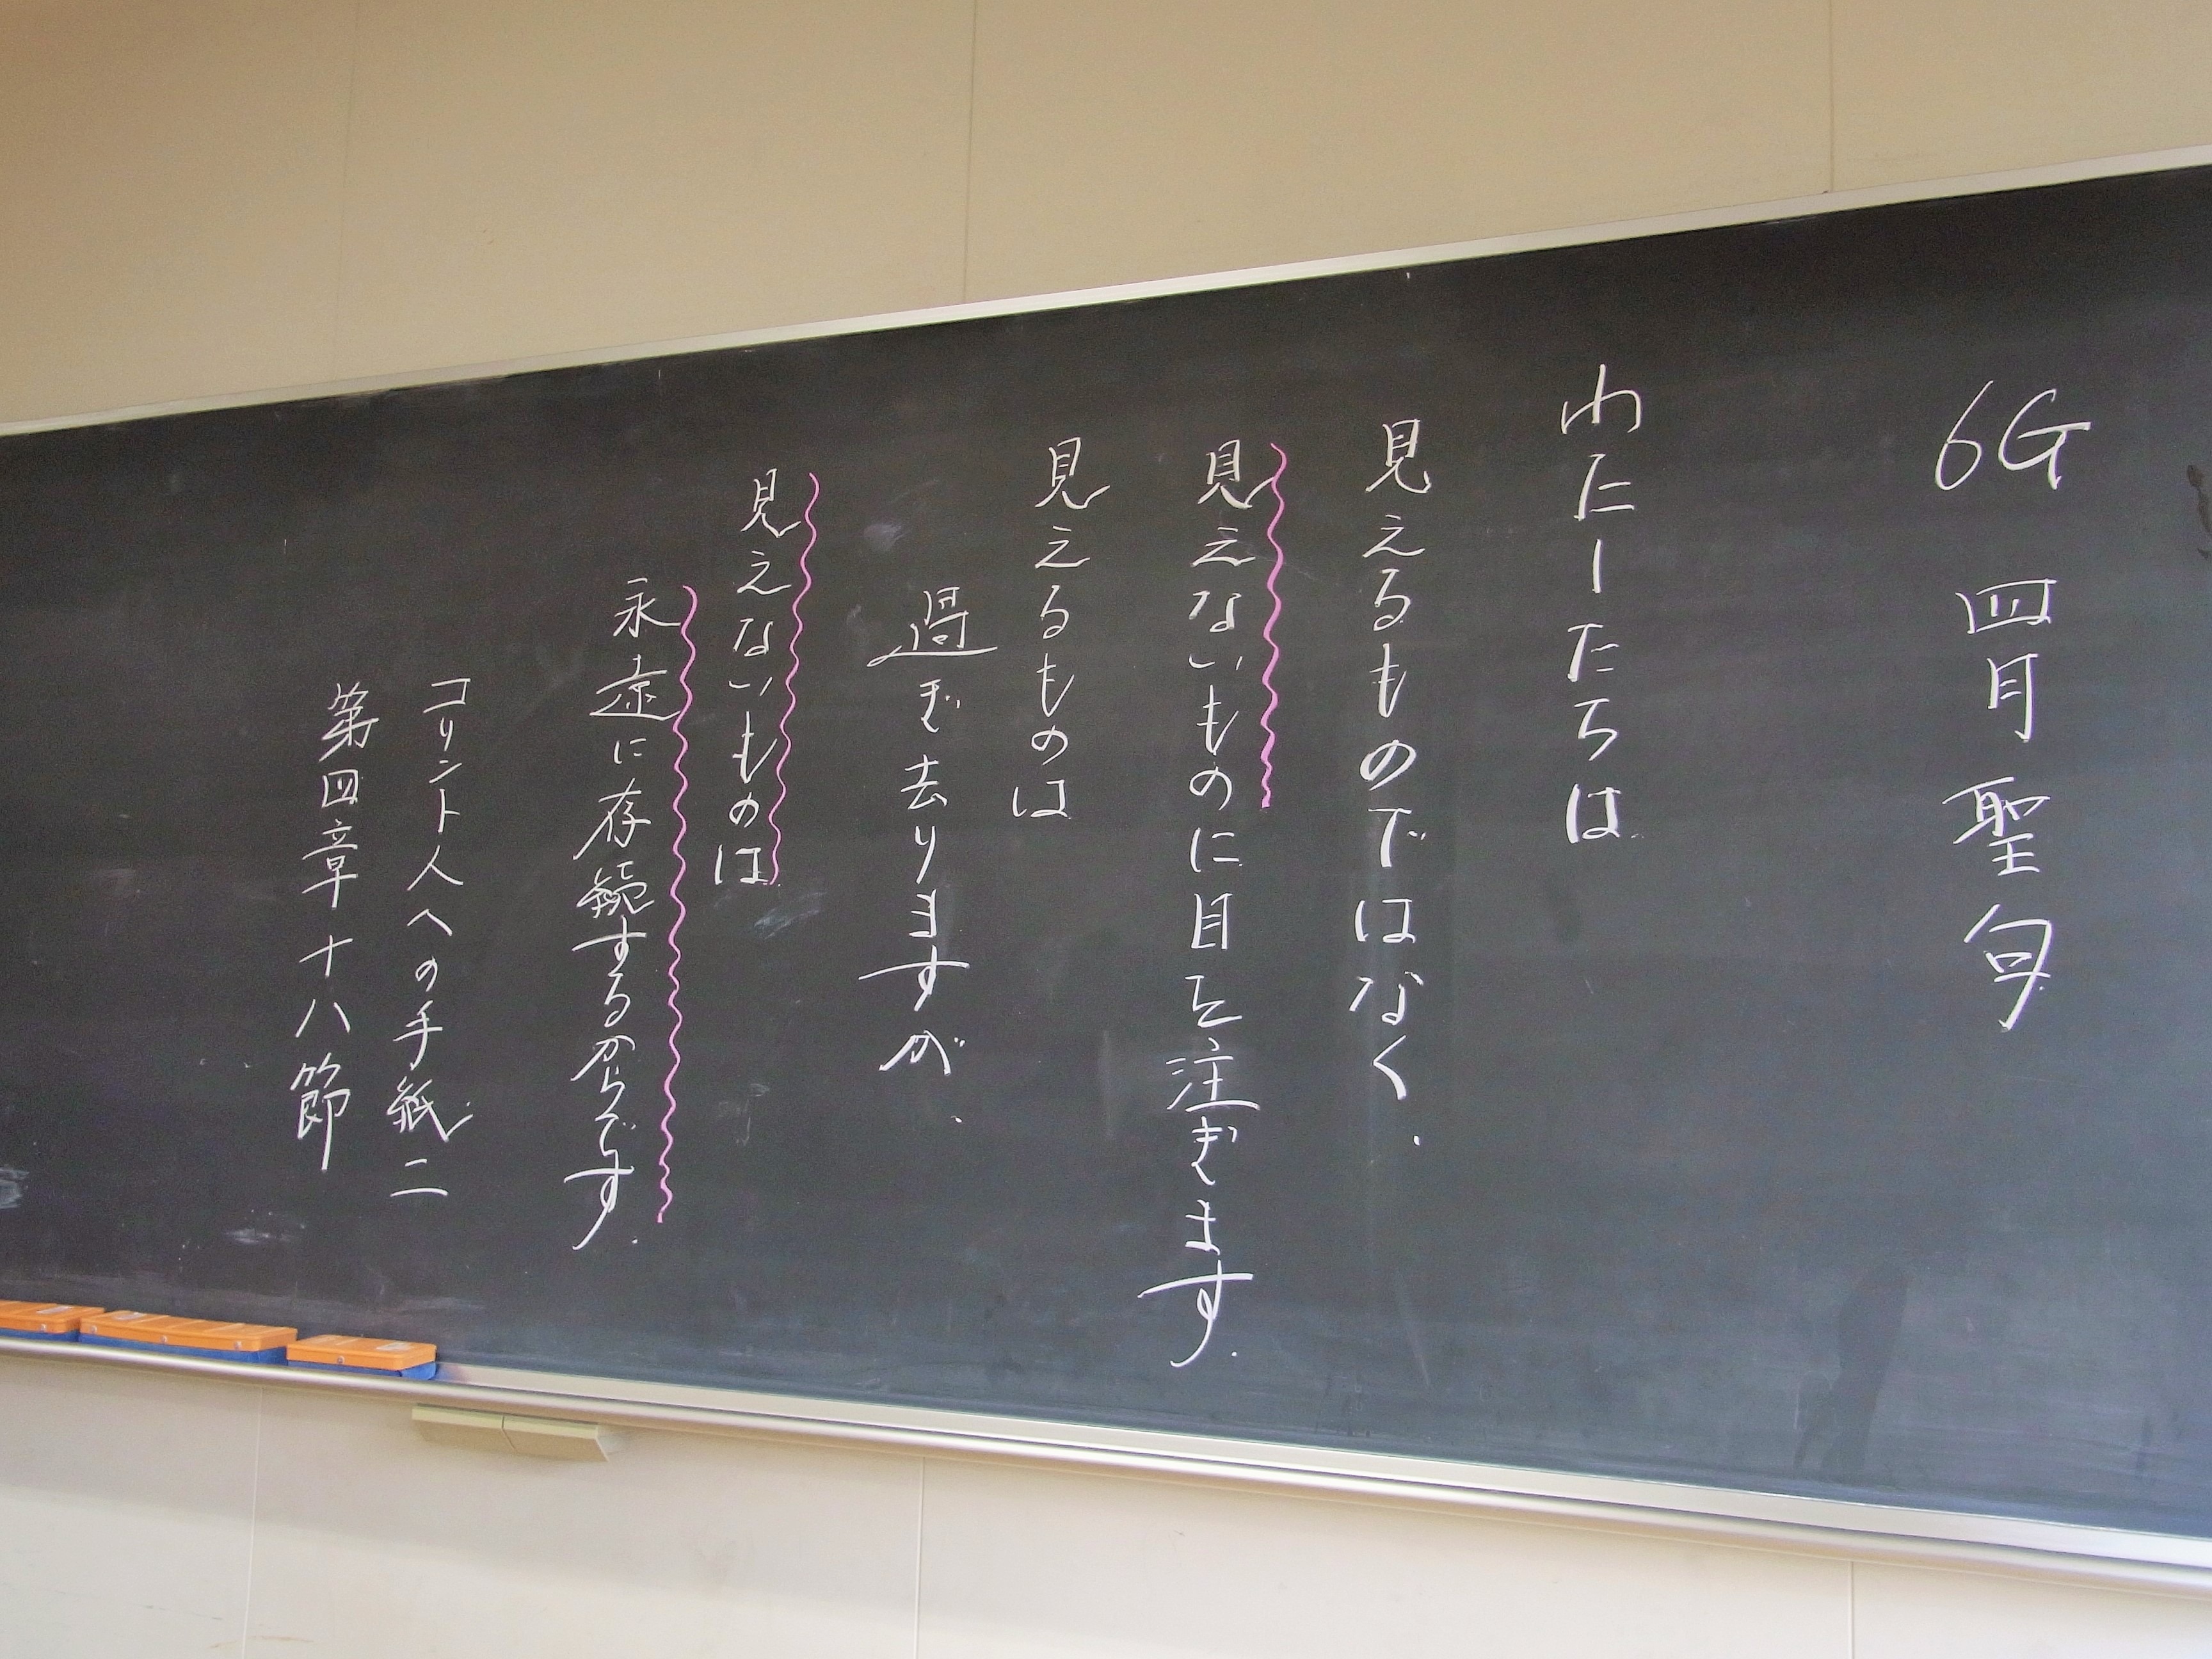 6G 四月 聖句
わたしたちは
見えるものではなく、
見えないものに目を注ぎます。
見えるものは
過ぎ去りますが、
見えないものは
永遠に存続するからです。
コリント人への手紙二
第四章十八節